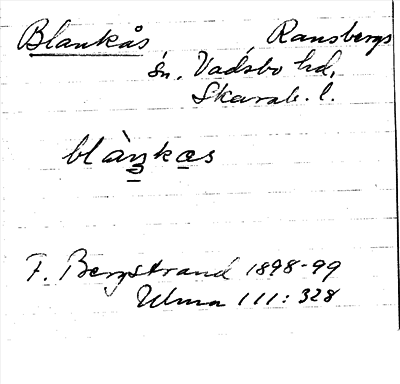 Blankås Ransbergs
sn. Vadsbo hd,
Skarab. l.
blàŋkas
F. Bergstrand 1898-99
Ulma 111:328